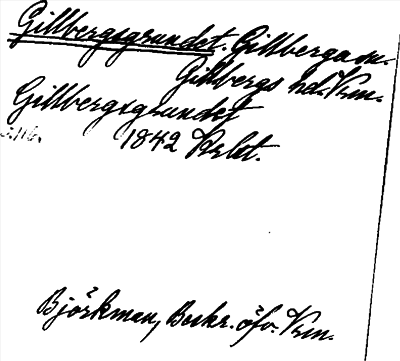 Gillbergsgrundet. Gillberga sn.
Gillbergs hd. Vrm.
Gillbergsgrundet
1842 Krbt.
Björkman, Beskr. öfv. Vrm.